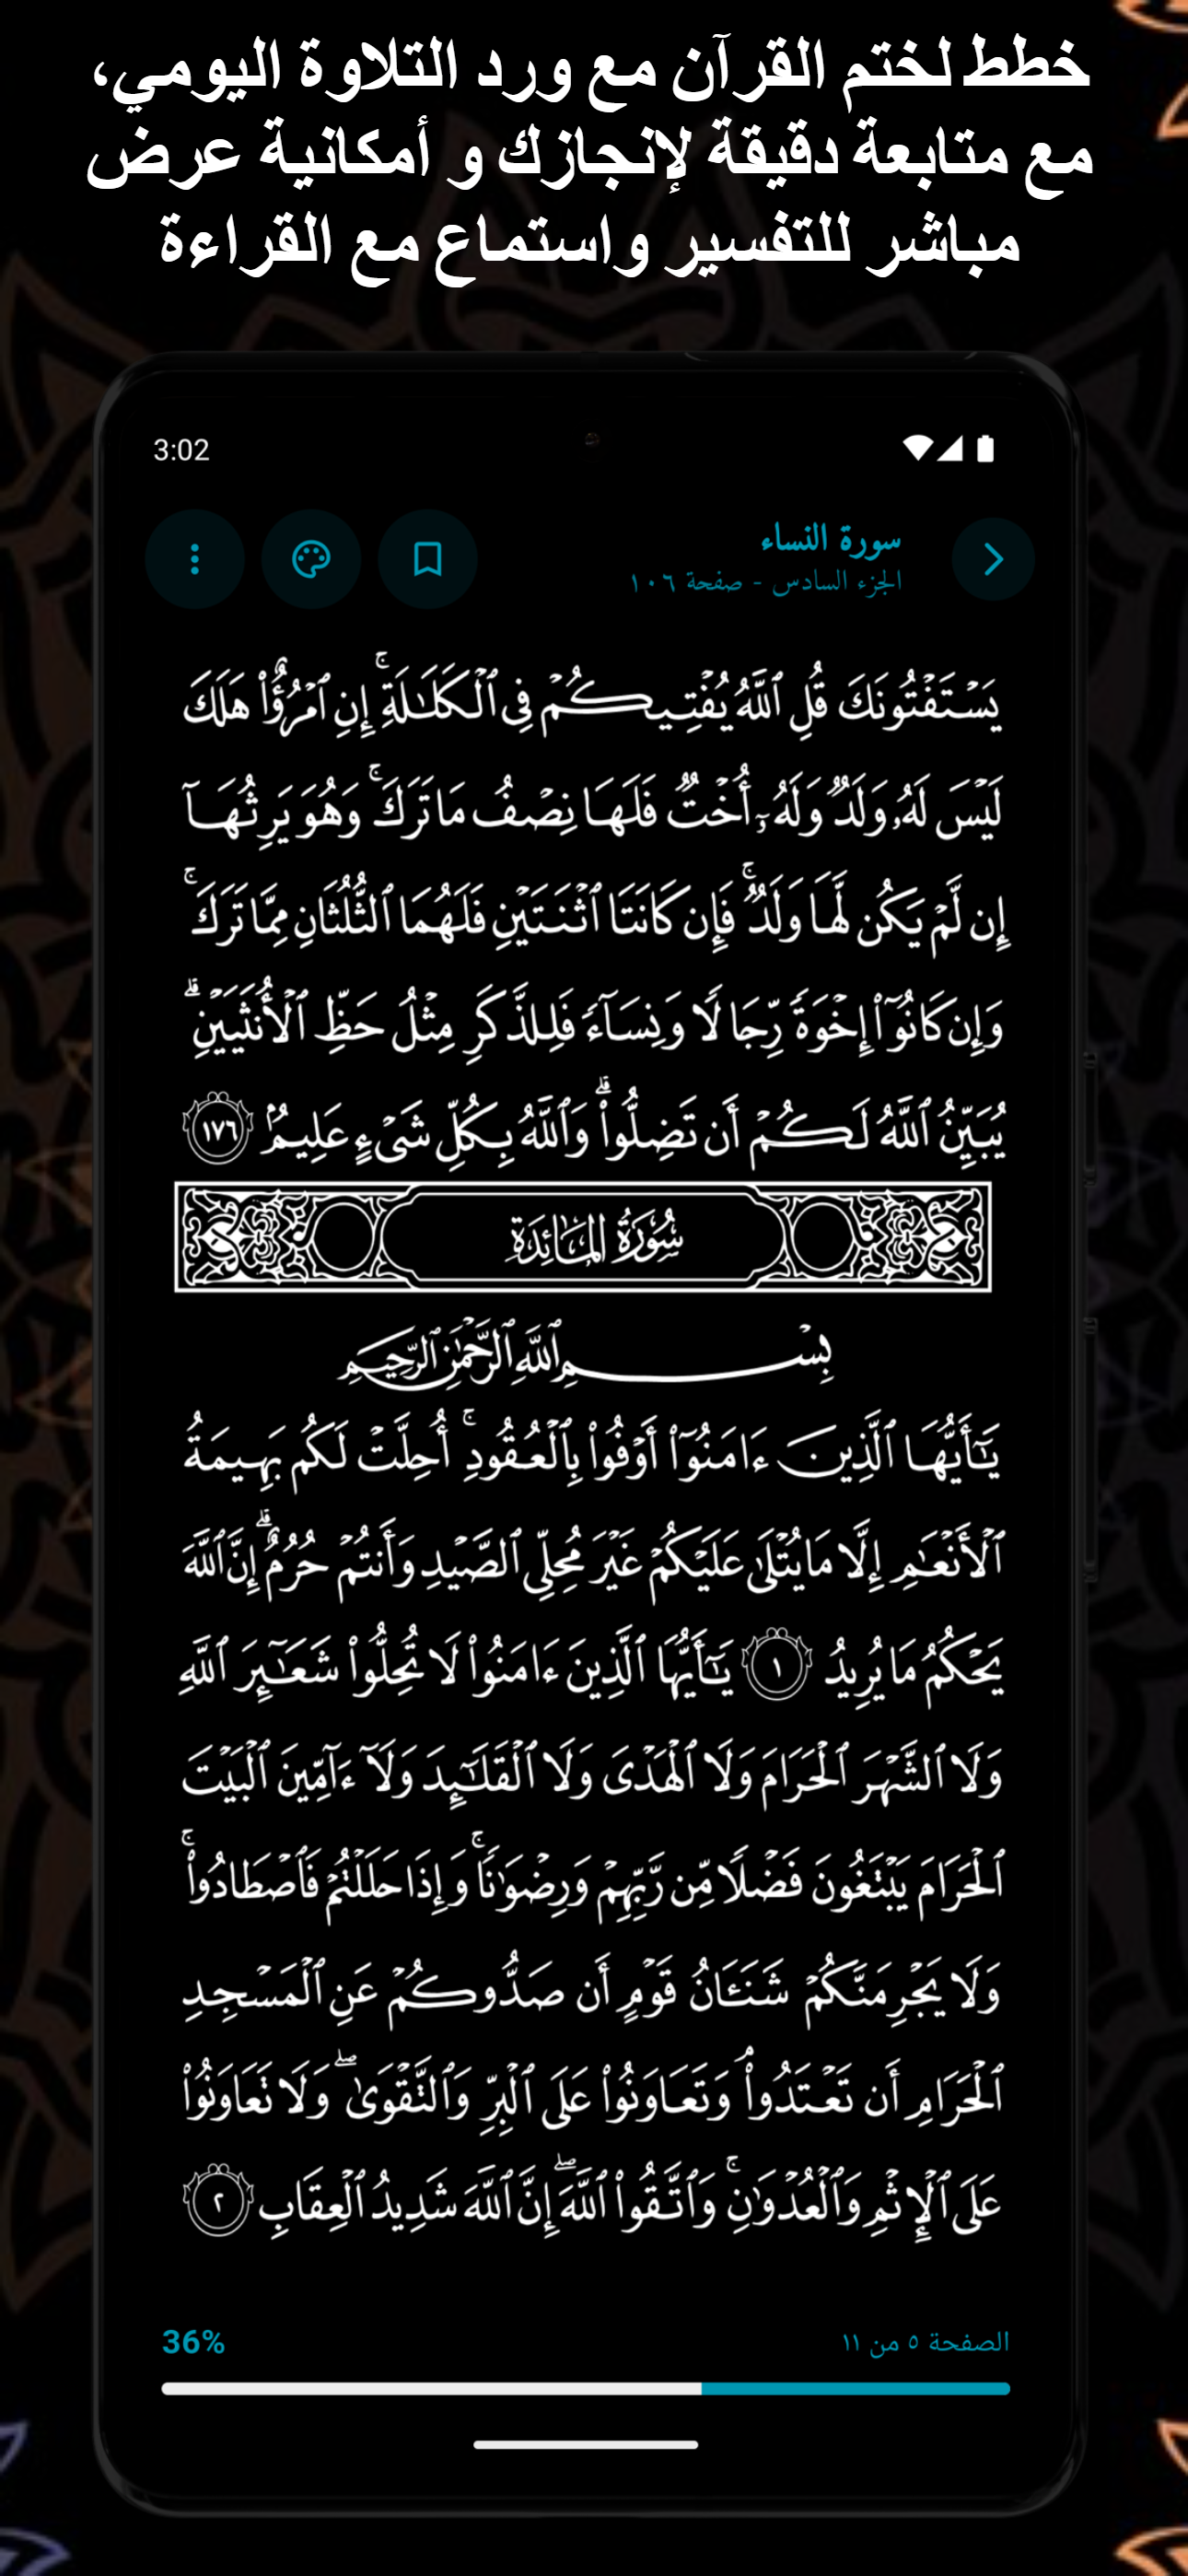 خطط لختم القرآن مع ورد التلاوة اليومي،
مع متابعة دقيقة لإنجازك و أمكانية عرض
مباشر للتفسير واستماع مع القراءة
3:02
سورة النساء
الجزء السادس - صفحة ١٠٦
يَسۡتَفۡتُونَكَ قُلِ ٱللَّهُ يُفۡتِيكُمۡ فِي ٱلۡكَلَٰلَةِۚ إِنِ ٱمۡرُؤٌاْ هَلَكَ
لَيۡسَ لَهُۥ وَلَدٞ وَلَهُۥٓ أُخۡتٞ فَلَهَا نِصۡفُ مَا تَرَكَۚ وَهُوَ يَرِثُهَآ
إِن لَّمۡ يَكُن لَّهَا وَلَدٞۚ فَإِن كَانَتَا ٱثۡنَتَيۡنِ فَلَهُمَا ٱلثُّلُثَانِ مِمَّا تَرَكَۚ
وَإِن كَانُوٓاْ إِخۡوَةٗ رِّجَالٗا وَنِسَآءٗ فَلِلذَّكَرِ مِثۡلُ حَظِّ ٱلۡأُنثَيَيۡنِۗ
يُبَيِّنُ ٱللَّهُ لَكُمۡ أَن تَضِلُّواْۗ وَٱللَّهُ بِكُلِّ شَيۡءٍ عَلِيمُۢ ١٧٦
سُورَةُ المَائِدَةِ
بِسۡمِ ٱللَّهِ ٱلرَّحۡمَٰنِ ٱلرَّحِيمِ
يَٰٓأَيُّهَا ٱلَّذِينَ ءَامَنُوٓاْ أَوۡفُواْ بِٱلۡعُقُودِۚ أُحِلَّتۡ لَكُم بَهِيمَةُ
ٱلۡأَنۡعَٰمِ إِلَّا مَا يُتۡلَىٰ عَلَيۡكُمۡ غَيۡرَ مُحِلِّي ٱلصَّيۡدِ وَأَنتُمۡ حُرُمٌۗ إِنَّ ٱللَّهَ
يَحۡكُمُ مَا يُرِيدُ ١ يَٰٓأَيُّهَا ٱلَّذِينَ ءَامَنُواْ لَا تُحِلُّواْ شَعَٰٓئِرَ ٱللَّهِ
وَلَا ٱلشَّهۡرَ ٱلۡحَرَامَ وَلَا ٱلۡهَدۡيَ وَلَا ٱلۡقَلَٰٓئِدَ وَلَآ ءَآمِّينَ ٱلۡبَيۡتَ
ٱلۡحَرَامَ يَبۡتَغُونَ فَضۡلٗا مِّن رَّبِّهِمۡ وَرِضۡوَٰنٗاۚ وَإِذَا حَلَلۡتُمۡ فَٱصۡطَادُواْۚ
وَلَا يَجۡرِمَنَّكُمۡ شَنَـَٔانُ قَوۡمٍ أَن صَدُّوكُمۡ عَنِ ٱلۡمَسۡجِدِ
ٱلۡحَرَامِ أَن تَعۡتَدُواْۘ وَتَعَاوَنُواْ عَلَى ٱلۡبِرِّ وَٱلتَّقۡوَىٰۖ وَلَا تَعَاوَنُواْ
عَلَى ٱلۡإِثۡمِ وَٱلۡعُدۡوَٰنِۚ وَٱتَّقُواْ ٱللَّهَۖ إِنَّ ٱللَّهَ شَدِيدُ ٱلۡعِقَابِ ٢
الصفحة ٥ من ١١
36%